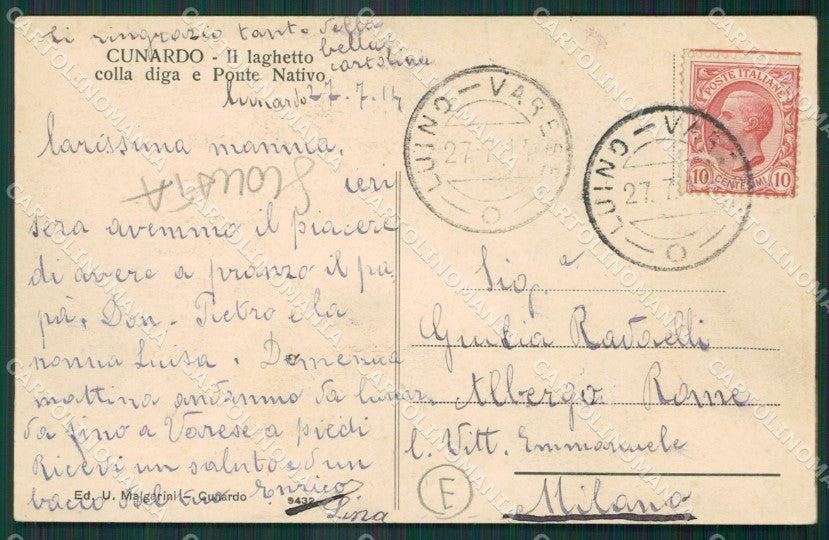 Ti ringrazio tanto della
bella
cartolina
CUNARDO - Il laghetto
colla diga e Ponte Nativo
Cunardo 27.7.14
Carissima mamma,
ieri
sera avemmo il piacere
di avere a pranzo il pa-
pà, Don. Pietro e la
nonna Luisa. Domenica
mattina andammo da Cunar-
do fino a Varese a piedi
Ricevi un saluto e d'un
bacio dal tuo Enrico
Lina
Ed. U. Malgarini - Cunardo
9432
SCONTA
LUINO - VARESE
27.7
LUINO - VARESE
27.7
POSTE ITALIANE
10 CENTESIMI 10
Sig.a
Giulia Radaelli
Albergo Rome
C. Vitt. Emmanuele
Milano
E
CARTOLINOMANIA